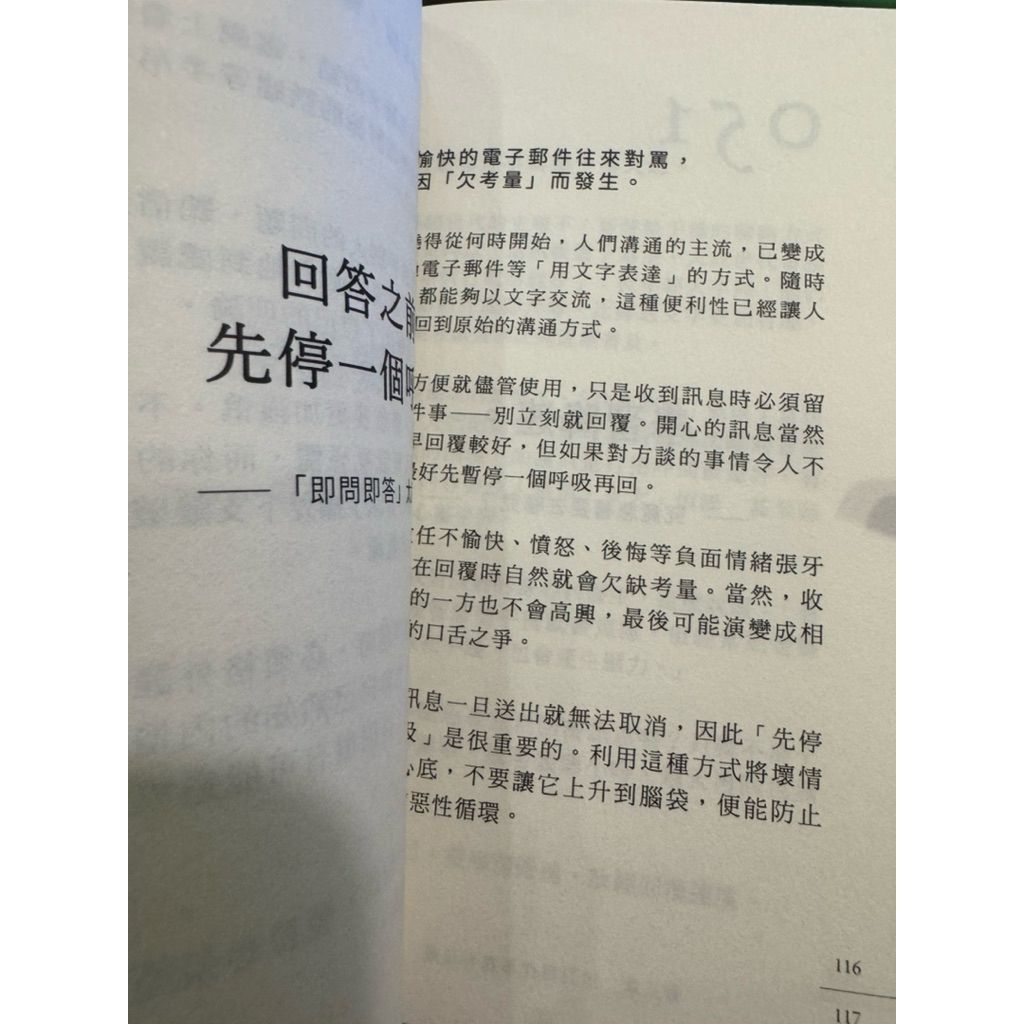 回答之前
先停一個呼
——「即問即答」
愉快的電子郵件往來對罵，
因「欠考量」而發生。
得從何時開始，人們溝通的主流，已變成
電子郵件等「用文字表達」的方式。隨時
都能夠以文字交流，這種便利性已經讓人
回到原始的溝通方式。
方便就儘管使用，只是收到訊息時必須留
件事——別立刻就回覆。開心的訊息當然
早回覆較好，但如果對方談的事情令人不
最好先暫停一個呼吸再回。
任不愉快、憤怒、後悔等負面情緒張牙
在回覆時自然就會欠缺考量。當然，收
的一方也不會高興，最後可能演變成相
的口舌之爭。
訊息一旦送出就無法取消，因此「先停
吸」是很重要的。利用這種方式將壞情
心底，不要讓它上升到腦袋，便能防止
惡性循環。
116
117